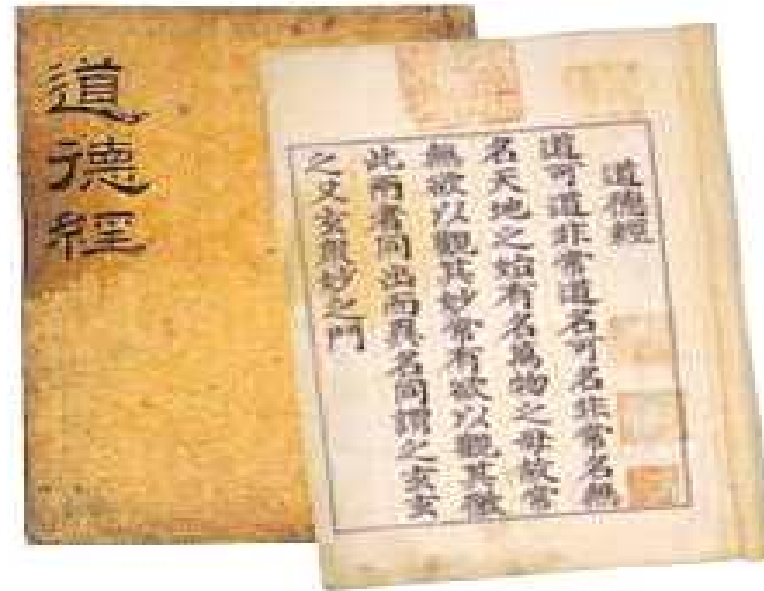 道德經
道德經
道可道非常道名可名非常名無
名天地之始有名萬物之母故常
無欲以觀其妙常有欲以觀其徼
此兩者同出而異名同謂之玄玄
之又玄眾妙之門